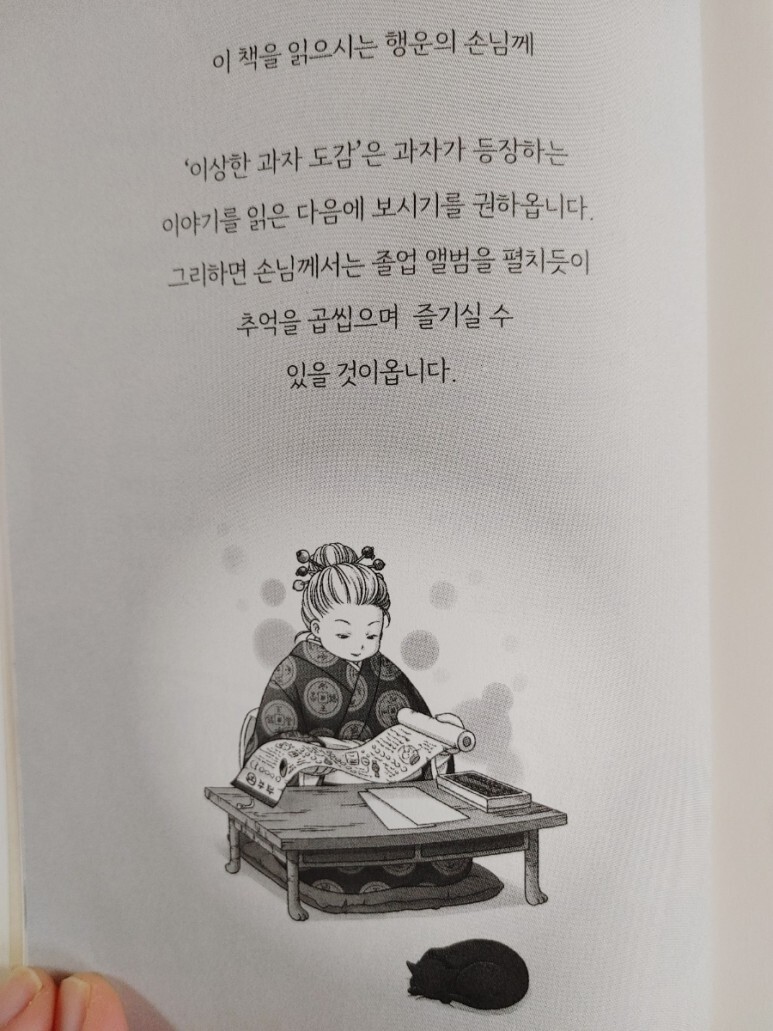 이 책을 읽으시는 행운의 손님께
‘이상한 과자 도감’은 과자가 등장하는
이야기를 읽은 다음에 보시기를 권하옵니다.
그리하면 손님께서는 졸업 앨범을 펼치듯이
추억을 곱씹으며 즐기실 수
있을 것이옵니다.